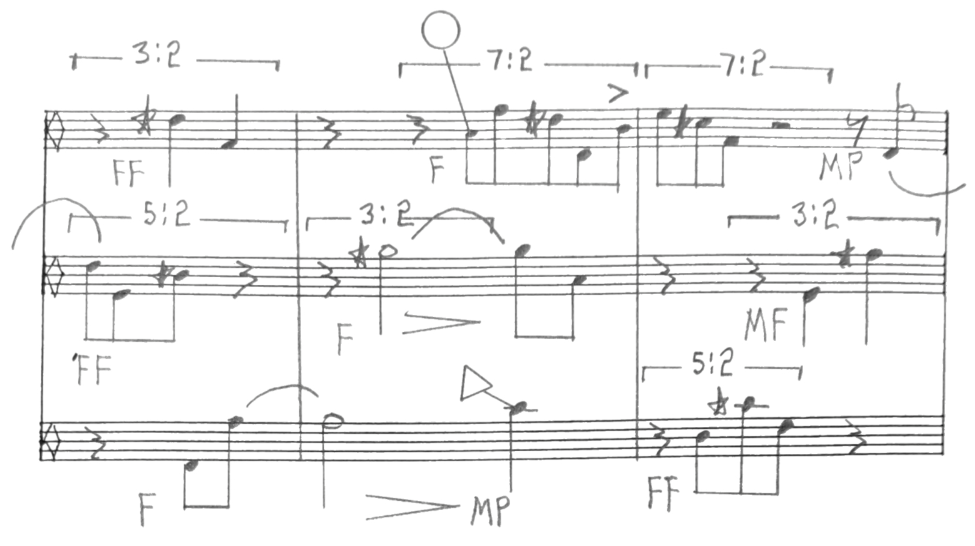 3:2 7:2 7:2
FF F MP
5:2 3:2 3:2
FF F MF
5:2
F MP FF